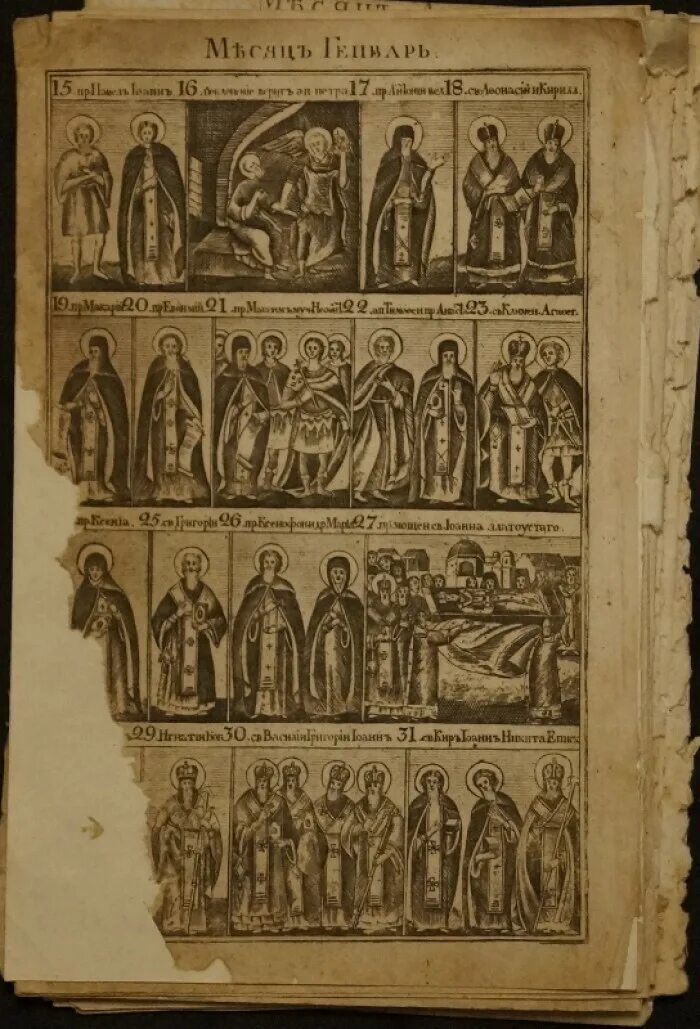 МѢСЯЦЪ ГЕНВАРЬ.
15 пр Павелъ Іоаннъ 16 веригъ ап петра 17 пр Антоніи вел 18 св Афонасіи и Кирил.
19 пр Макаріи 20 пр Евѳиміи 21 пр Маѯ 22 ап Тимоѳеи пр Анас 23 св Климен. Агаѳаг.
пр Ксенія. 25 св Григоріи 26 пр Ксенофон и др Марія 27 пр мощеи св Іоанна златоустаго.
29 Игнатіи Бон 30 св Василіи Григоріи Іоаннъ 31 св Киръ Іоаннъ Никита Епис